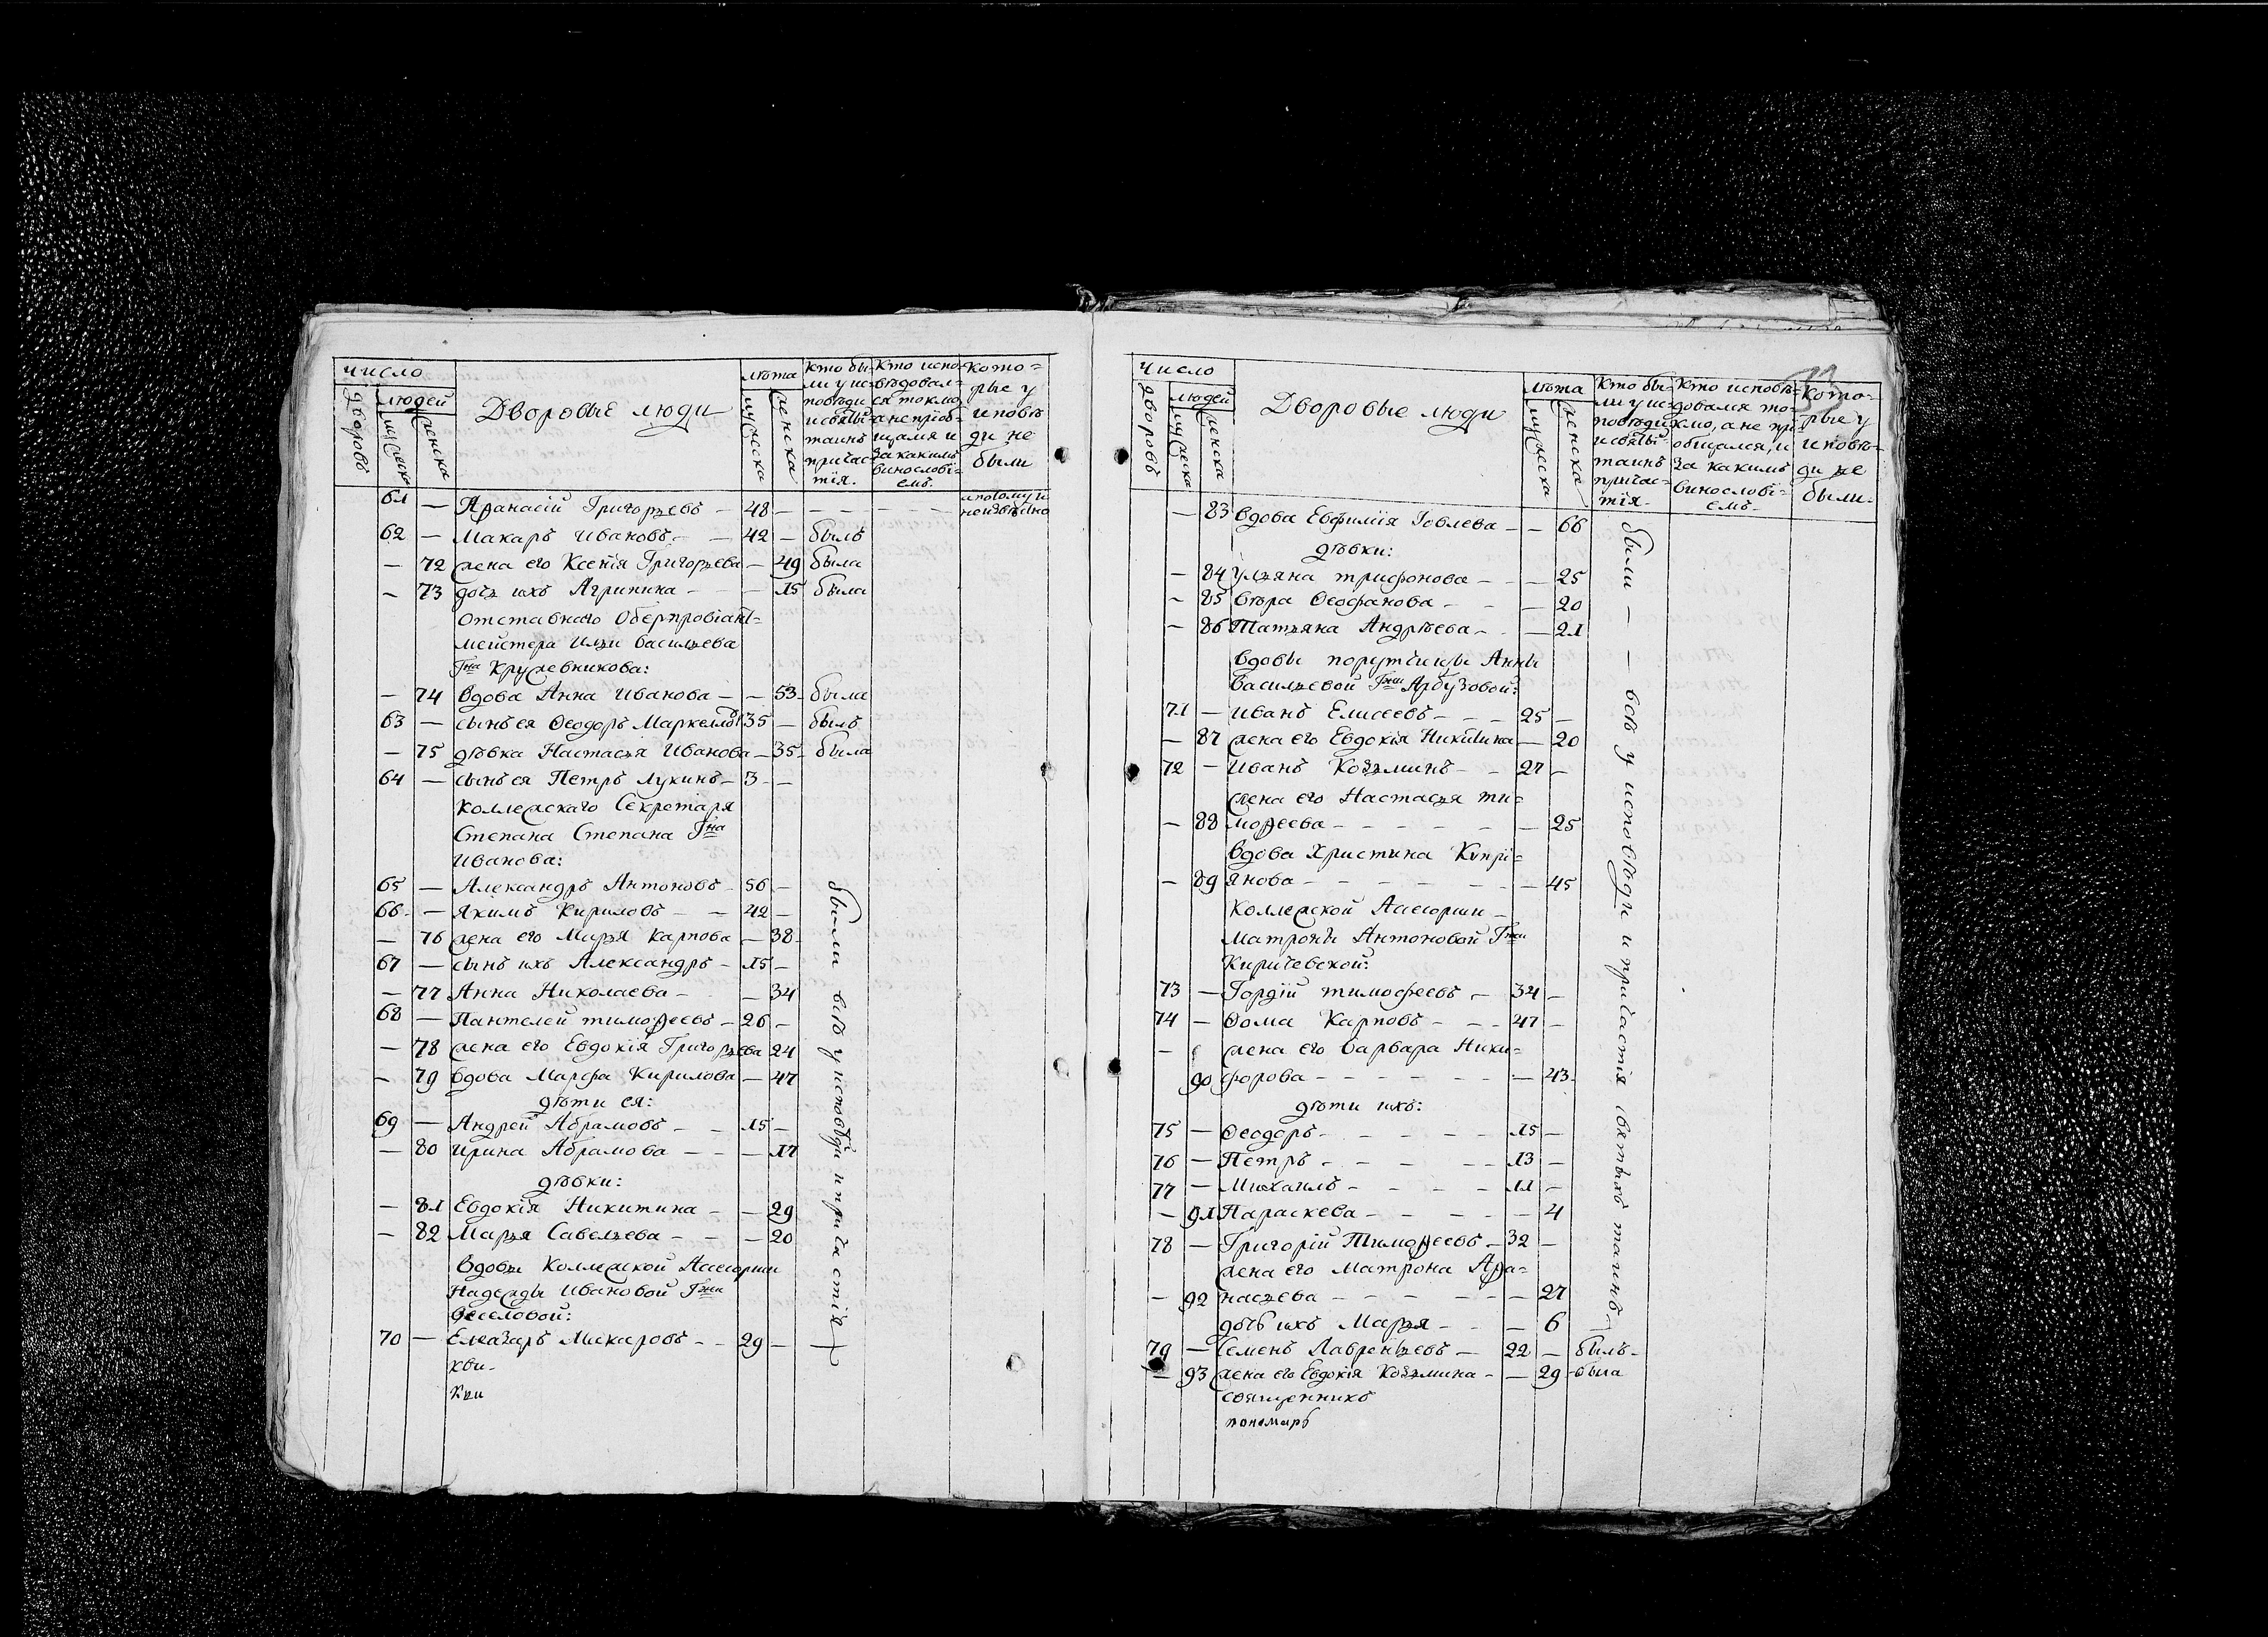 число
дворовъ
людей
мужеска
женска
Дворовые люди
лѣта
мужеска
женска
Кто бы-
ли у ис-
повѣди
и святы
таинъ
причас-
тія.
Кто испо-
вѣдовал-
ся токмо,
а не пріоб-
щался и
за какимъ
винословї-
емъ.
Кото-
рые у
исповѣ
ди не
были
61 — Аѳанасій Григорьевъ — 48 — — — —
62 — Макаръ Ивановъ — — 42 — былъ
— 72 жена его Ксенїя Григорьева — 49 была
— 73 дочь ихъ Агрипина — — — 15 была
Отставнаго Оберпровіант-
мейстера Ильи Васильева
Гна Кружевникова:
— 74 Вдова Анна Иванова — — 53 — была
63 — сынъ ея Ѳеодоръ Маркелловъ 35 — былъ
— 75 дѣвка Настасья Иванова — 35 — была
64 — сынъ ея Петръ Лукинъ — 3 — —
Коллежскаго Секретаря
Степана Степана Гна
Иванова:
65 — Александръ Антоновъ — 56 —
66 — Якимъ Кириловъ — — 42 —
— 76 жена его Марья Карпова — 38
67 — сынъ ихъ Александръ — 15 —
— 77 Анна Николаева — — 34
68 — Пантелей тимоѳеевъ — 26 —
— 78 жена его Евдокїя Григорьева 24
— 79 вдова Марфа Кирилова — 47
дѣти ея:
69 — Андрей Абрамовъ — — 15 —
— 80 Ирина Абрамова — — — 17
дѣвки:
— 81 Евдокїя Никитина — — 29
— 82 Марья Савельева — — — 20
Вдовы Коллежской Асесорши
Надежды Ивановой Гжи
70 — Елеазаръ Макаровъ — — 29 —
были всѣ у исповѣди и причастія
число
дворовъ
людей
мужеска
женска
Дворовые люди
лѣта
мужеска
женска
Кто бы-
ли у ис-
повѣди
и святы
таинъ
причас-
тія.
Кто исповѣ-
довался то-
кмо, а не прі-
общался, и
за какимъ
винословї-
емъ.
Кото-
рые у
исповѣ-
ди не
были.
— 83 Вдова Евфимїя Іовлева — — 66
дѣвки:
— 84 Ульяна трифонова — — — 25
— 85 Вѣра Ѳеофанова — — — 20
— 86 Татьяна Андрѣева — — 21
Вдовы порутчицы Анны
Васильевой Гжи Арбузовой:
71 — Иванъ Елисеевъ — — — 25 —
— 87 жена его Евдокїя Никитина — 20
72 — Иванъ Козьминъ — — 27 —
жена его Настасья ти-
— 88 моѳеева — — — — — — 25
Вдова Христина Кипрі-
— 89 янова — — — — — — 45
Коллежской Асесорши —
Матроны Антоновой Гжи
Киричевской:
73 — Гордїй тимофеевъ — 34 —
74 — Ѳома Карповъ — — — 47 —
— жена его Варвара Ники-
90 форова — — — — — — 43
дѣти ихъ:
75 — Ѳеодоръ — — — — — 15 —
76 — Петръ — — — — — 13 —
77 — Михаилъ — — — — 11 —
— 91 Параскева — — — — — 4
78 — Григорій Тимоѳеевъ — 32 —
жена его Матрона Аѳа-
— 92 насьева — — — — — — 27
дочь ихъ Марья — — — 6
79 — Семенъ Лаврентьевъ — 22 — былъ —
— 93 жена его Евдокїя Козьмина — — 29 — была
священникъ
пономарь
были — — всѣ у исповѣди и причастія святыхъ таинъ